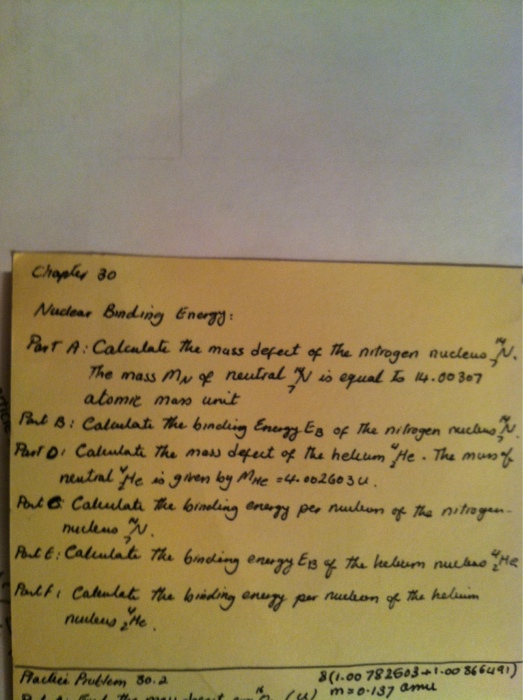 Chapter 30
Nuclear Binding Energy:
Part A: Calculate the mass defect of the nitrogen nucleus ¹⁴₇N.
The mass M_N of neutral ¹⁴₇N is equal to 14.00307
atomic mass unit
Part B: Calculate the binding Energy E_B of the nitrogen nucleus ¹⁴₇N.
Part D: Calculate the mass defect of the helium ⁴₂He. The mass of
neutral ⁴₂He is given by M_He = 4.002603u.
Part C: Calculate the binding energy per nucleon of the nitrogen-
nucleus ¹⁴₇N.
Part E: Calculate the binding energy E_B of the helium nucleus ⁴₂He
Part F: Calculate the binding energy per nucleon of the helium
nucleus ⁴₂He.
Practice Problem 30.2 8(1.00782503+1.00866491)
the mass (u) m = 0.137 amu